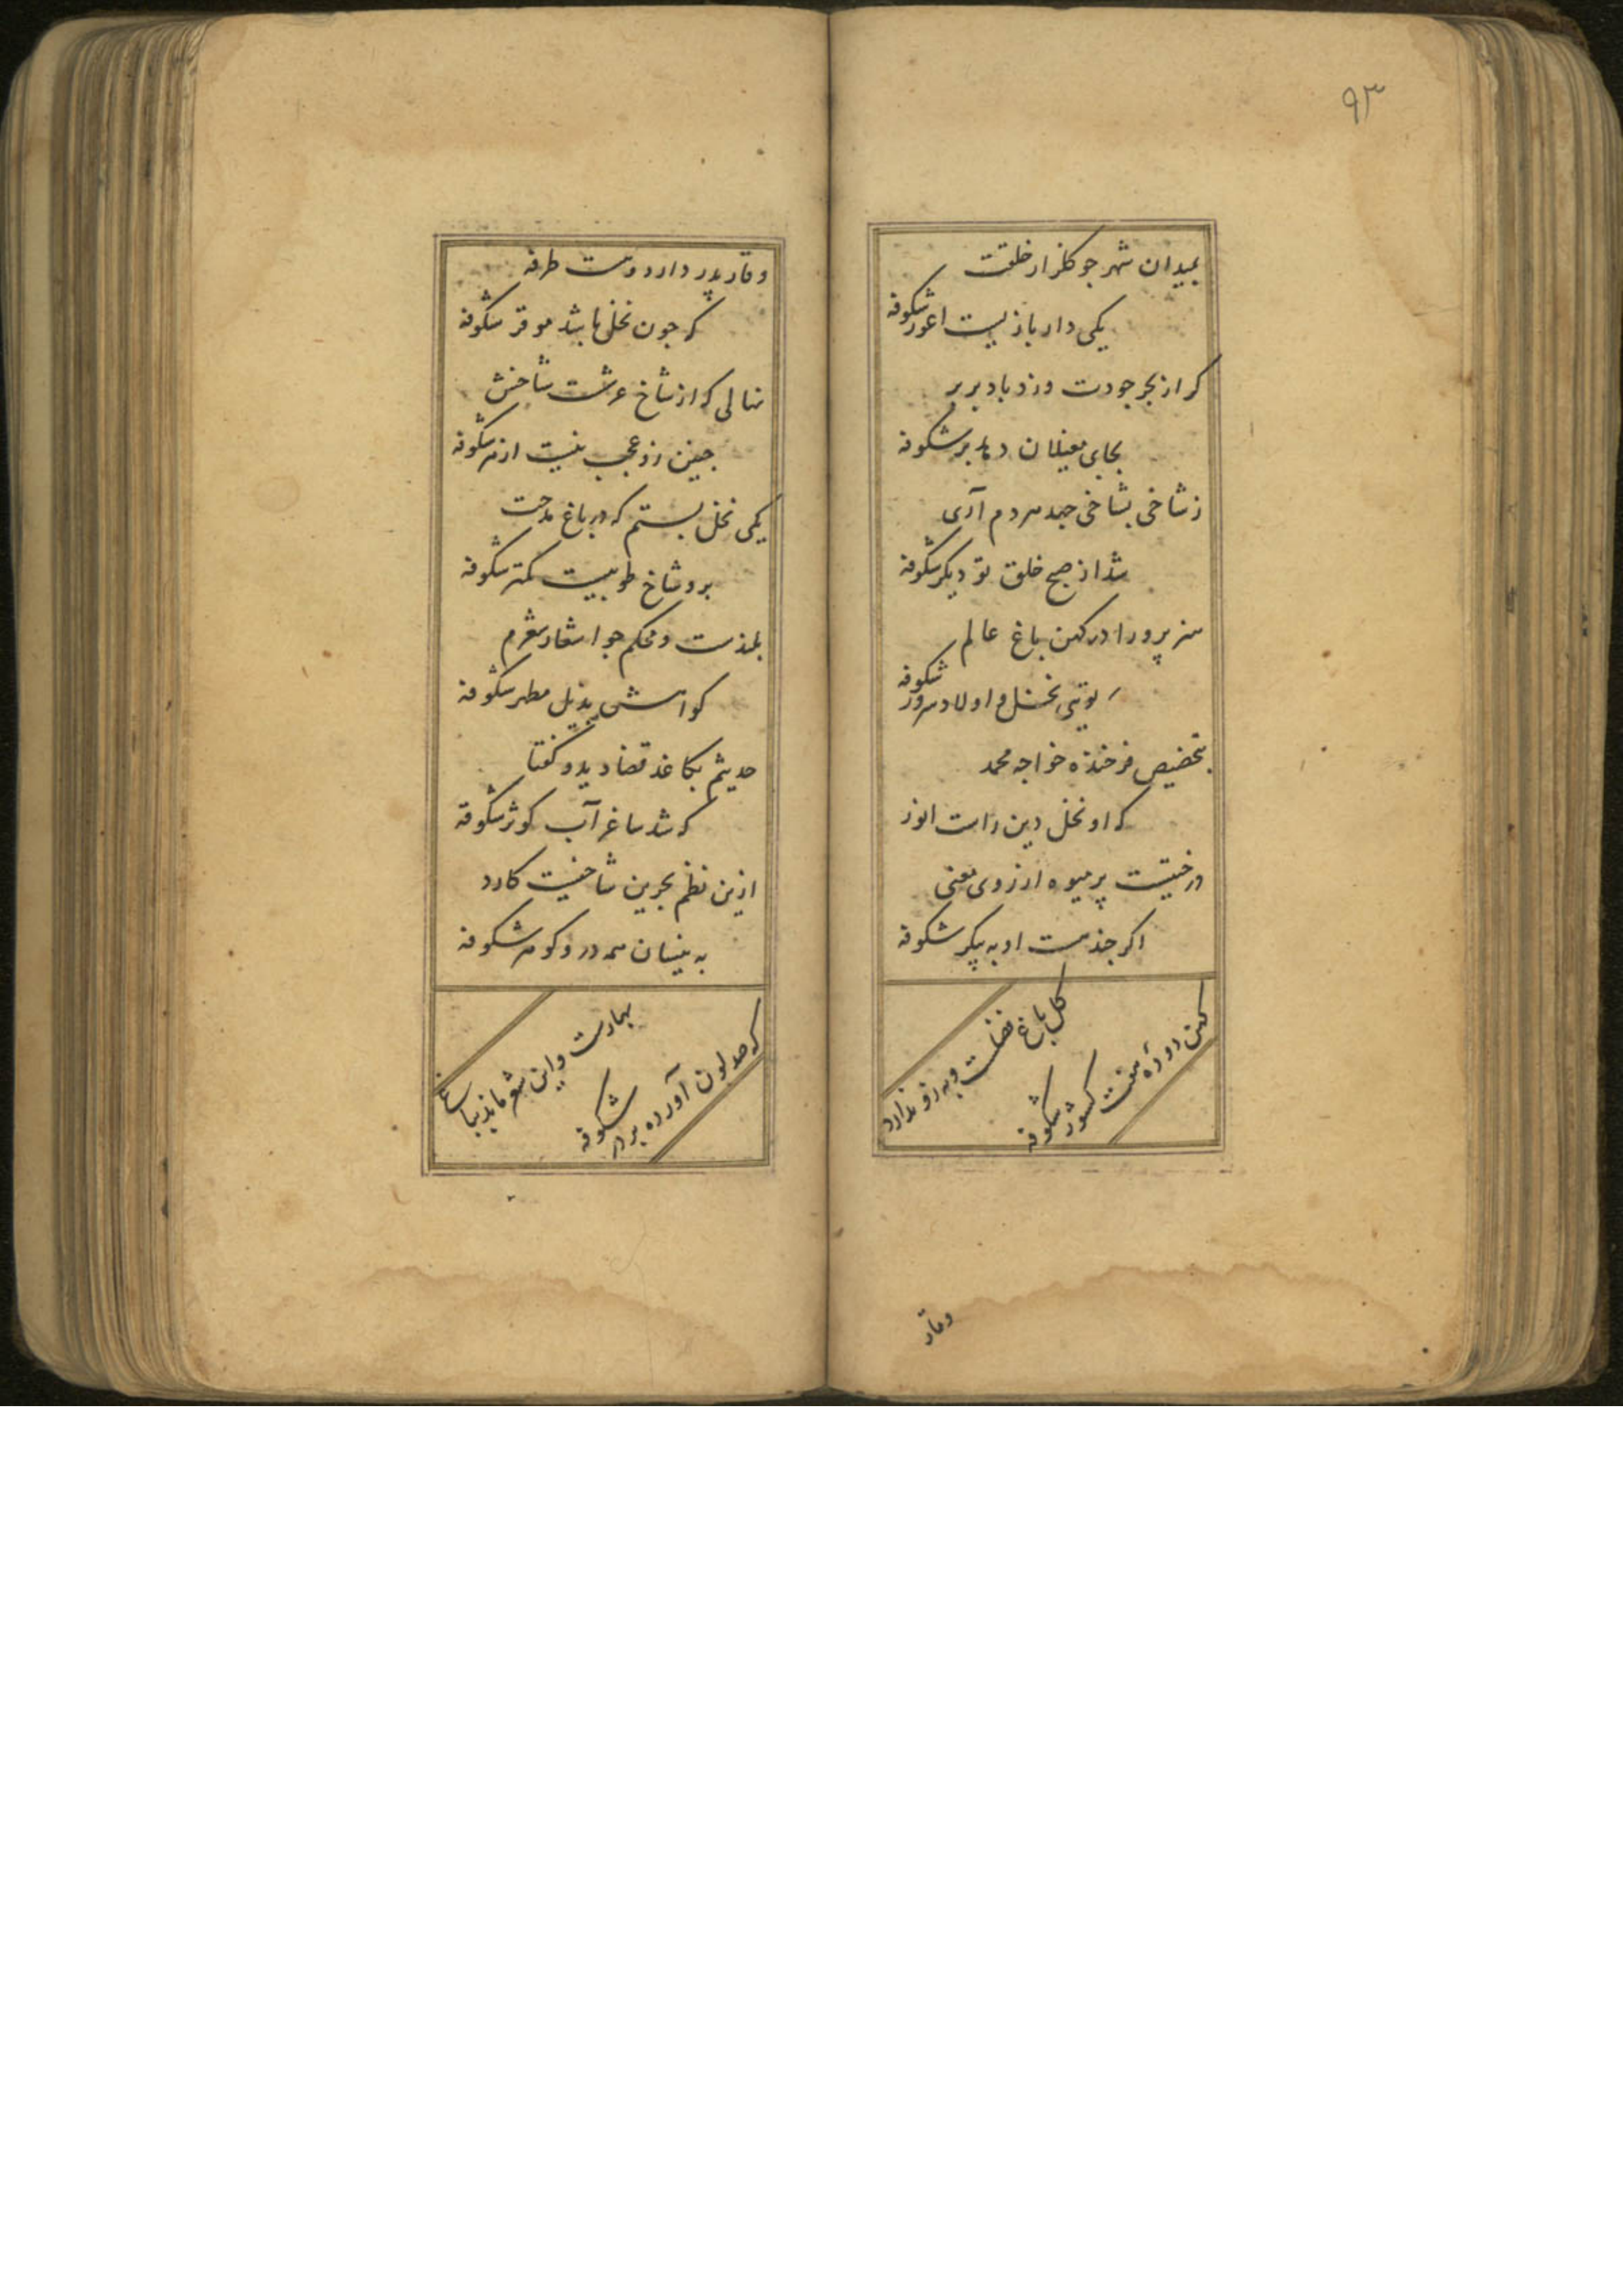 ۹۳
بمیدان شهر جو کلزار خلقت
یکی دار بازیست اعور شکوفه
کر از بحر جودت وزد باد بر بر
بجای مغیلان دهد بر شکوفه
ز شاخی بشاخی جهد مردم آری
شد از صبح خلق تو دیکر شکوفه
هنر پرورا در کهن باغ عالم
تویی نخل و اولاد سرور شکوفه
بتخصیص فرخنده خواجه محمد
که او نخل دین راست انور
درختیست پر میوه از روی معنی
اکر جند هست او به پیکر شکوفه
کل باغ فضلست و به زو ندارد
کهن دوده هفت کشور شکوفه
وقار
وقار پدر دارد و هست طرفه
که جون نخل باشد موقر شکوفه
نهالی که از شاخ عرشت شاخش
جنین زو عجب نیست ازهر شکوفه
یکی نخل بستم که در باغ مدحت
برو شاخ طوبیست کمتر شکوفه
بلندست و محکم جو اشعار نغزم
کواهش بذیل مطهر شکوفه
حدیثم بکاغذ قضا دید و کفتا
که شد ساغر آب کوثر شکوفه
ازین نظم بحرین شاخیست کارد
به نیسان همه در و کوهر شکوفه
بهارست و این شعر ماند بباغی
که صد لون آورده بر در شکوفه